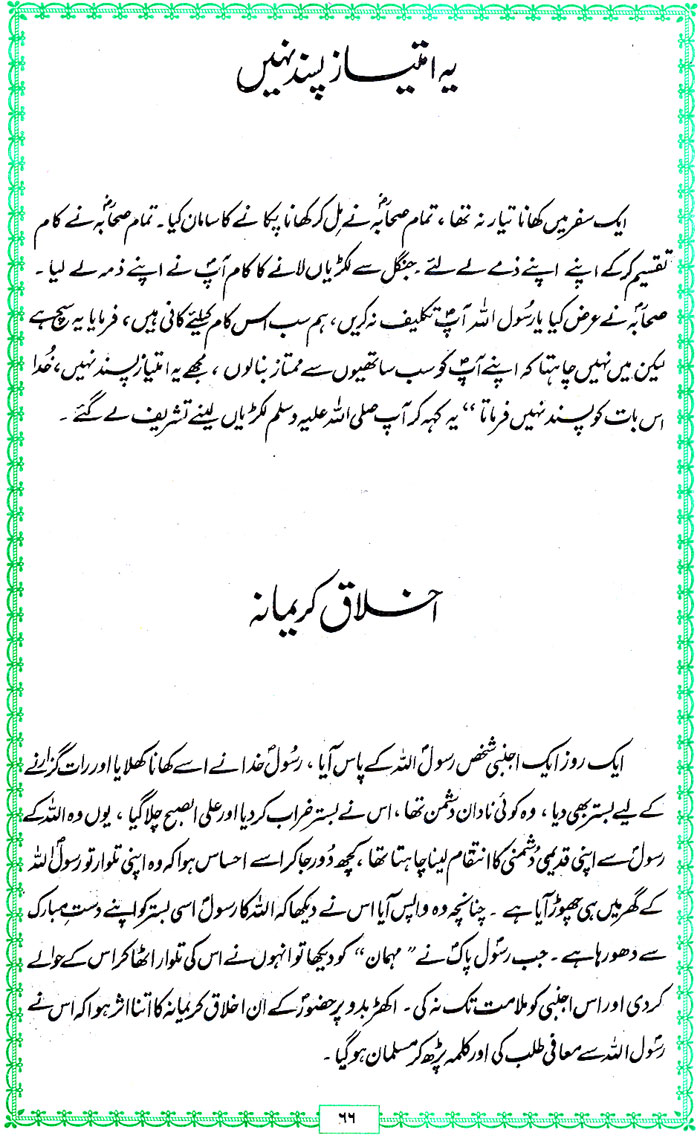 یہ امتیاز پسند نہیں
ایک سفر میں کھانا تیار نہ تھا، تمام صحابہؓ نے مل کر کھانا پکانے کا سامان کیا۔ تمام صحابہؓ نے کام
تقسیم کرکے اپنے اپنے ذمے لے لئے۔ جنگل سے لکڑیاں لانے کا کام آپؐ نے اپنے ذمہ لے لیا۔
صحابہؓ نے عرض کیا یا رسُول اللہ آپؐ تکلیف نہ کریں، ہم سب اس کام کیلئے کافی ہیں، فرمایا یہ سچ ہے
لیکن میں نہیں چاہتا کہ اپنے آپؐ کو سب ساتھیوں سے ممتاز بنالوں، مجھے یہ امتیاز پسند نہیں، خُدا
اس بات کو پسند نہیں فرماتا“ یہ کہہ کر آپ صلی اللہ علیہ وسلم لکڑیاں لینے تشریف لے گئے۔
اخلاق کریمانہ
ایک روز ایک اجنبی شخص رسولؐ اللہ کے پاس آیا، رسُولؐ خدا نے اسے کھانا کھلایا اور رات گزارنے
کے لیے بستر بھی دیا، وہ کوئی نادان دشمن تھا، اس نے بستر خراب کردیا اور علی الصبح چلا گیا، یوں وہ اللہ کے
رسولؐ سے اپنی قدیمی دُشمنی کا انتقام لینا چاہتا تھا، کچھ دُور جاکر اسے احساس ہوا کہ وہ اپنی تلوار تو رسولؐ اللہ
کے گھر میں ہی چھوڑ آیا ہے۔ چنانچہ وہ واپس آیا اس نے دیکھا کہ اللہ کا رسولؐ اسی بستر کو اپنے دستِ مبارک
سے دھو رہا ہے۔ جب رسُول پاکؐ نے ”مہمان“ کو دیکھا تو انہوں نے اس کی تلوار اٹھا کر اس کے حوالے
کردی اور اس اجنبی کو ملامت تک نہ کی۔ اکھڑ بدو پر حضورؐ کے ان اخلاق کریمانہ کا اتنا اثر ہوا کہ اس نے
رسُولؐ اللہ سے معافی طلب کی اور کلمہ پڑھ کر مسلمان ہو گیا۔
۶۶